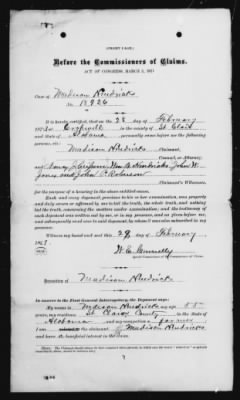 (FRONT PAGE.)
Before the Commissioners of Claims.
ACT OF CONGRESS, MARCH 3, 1871
Case of Madison Hendricks
No. 13926
It is hereby certified, that on the 28 day of February
187 , at in the county of St Clair
State of Alabama personally came before me the following
persons, viz.:
Madison Hendricks Claimant,
Counsel, or Attorney;
and Wm B Hendricks John W
Jones and John P Robinson
Claimant's Witnesses,
for the purpose of a hearing in the above entitled cause.
Each and every deponent previous to his or her examination, was properly
and duly sworn or affirmed by me to tell the truth, the whole truth, and nothing
but the truth, concerning the matters under examination; and the testimony of
each deponent was written out by me, or in my presence, and as given before
me, and subsequently read over to said deponent, by whom it was also subscribed in my
presence.
Witness my hand and seal this 28 day of February
187 .
[SEAL]
Special Commissioner of the Commissioners of Claims.
Deposition of Madison Hendricks
In answer to the First General Interrogatory, the Deponent says:
My name is Madison Hendricks my age 55
years, my residence St. Clair County in the State of
Alabama and my occupation a farmer
I am the claimant Madison Hendricks
and have beneficial interest in the claim.